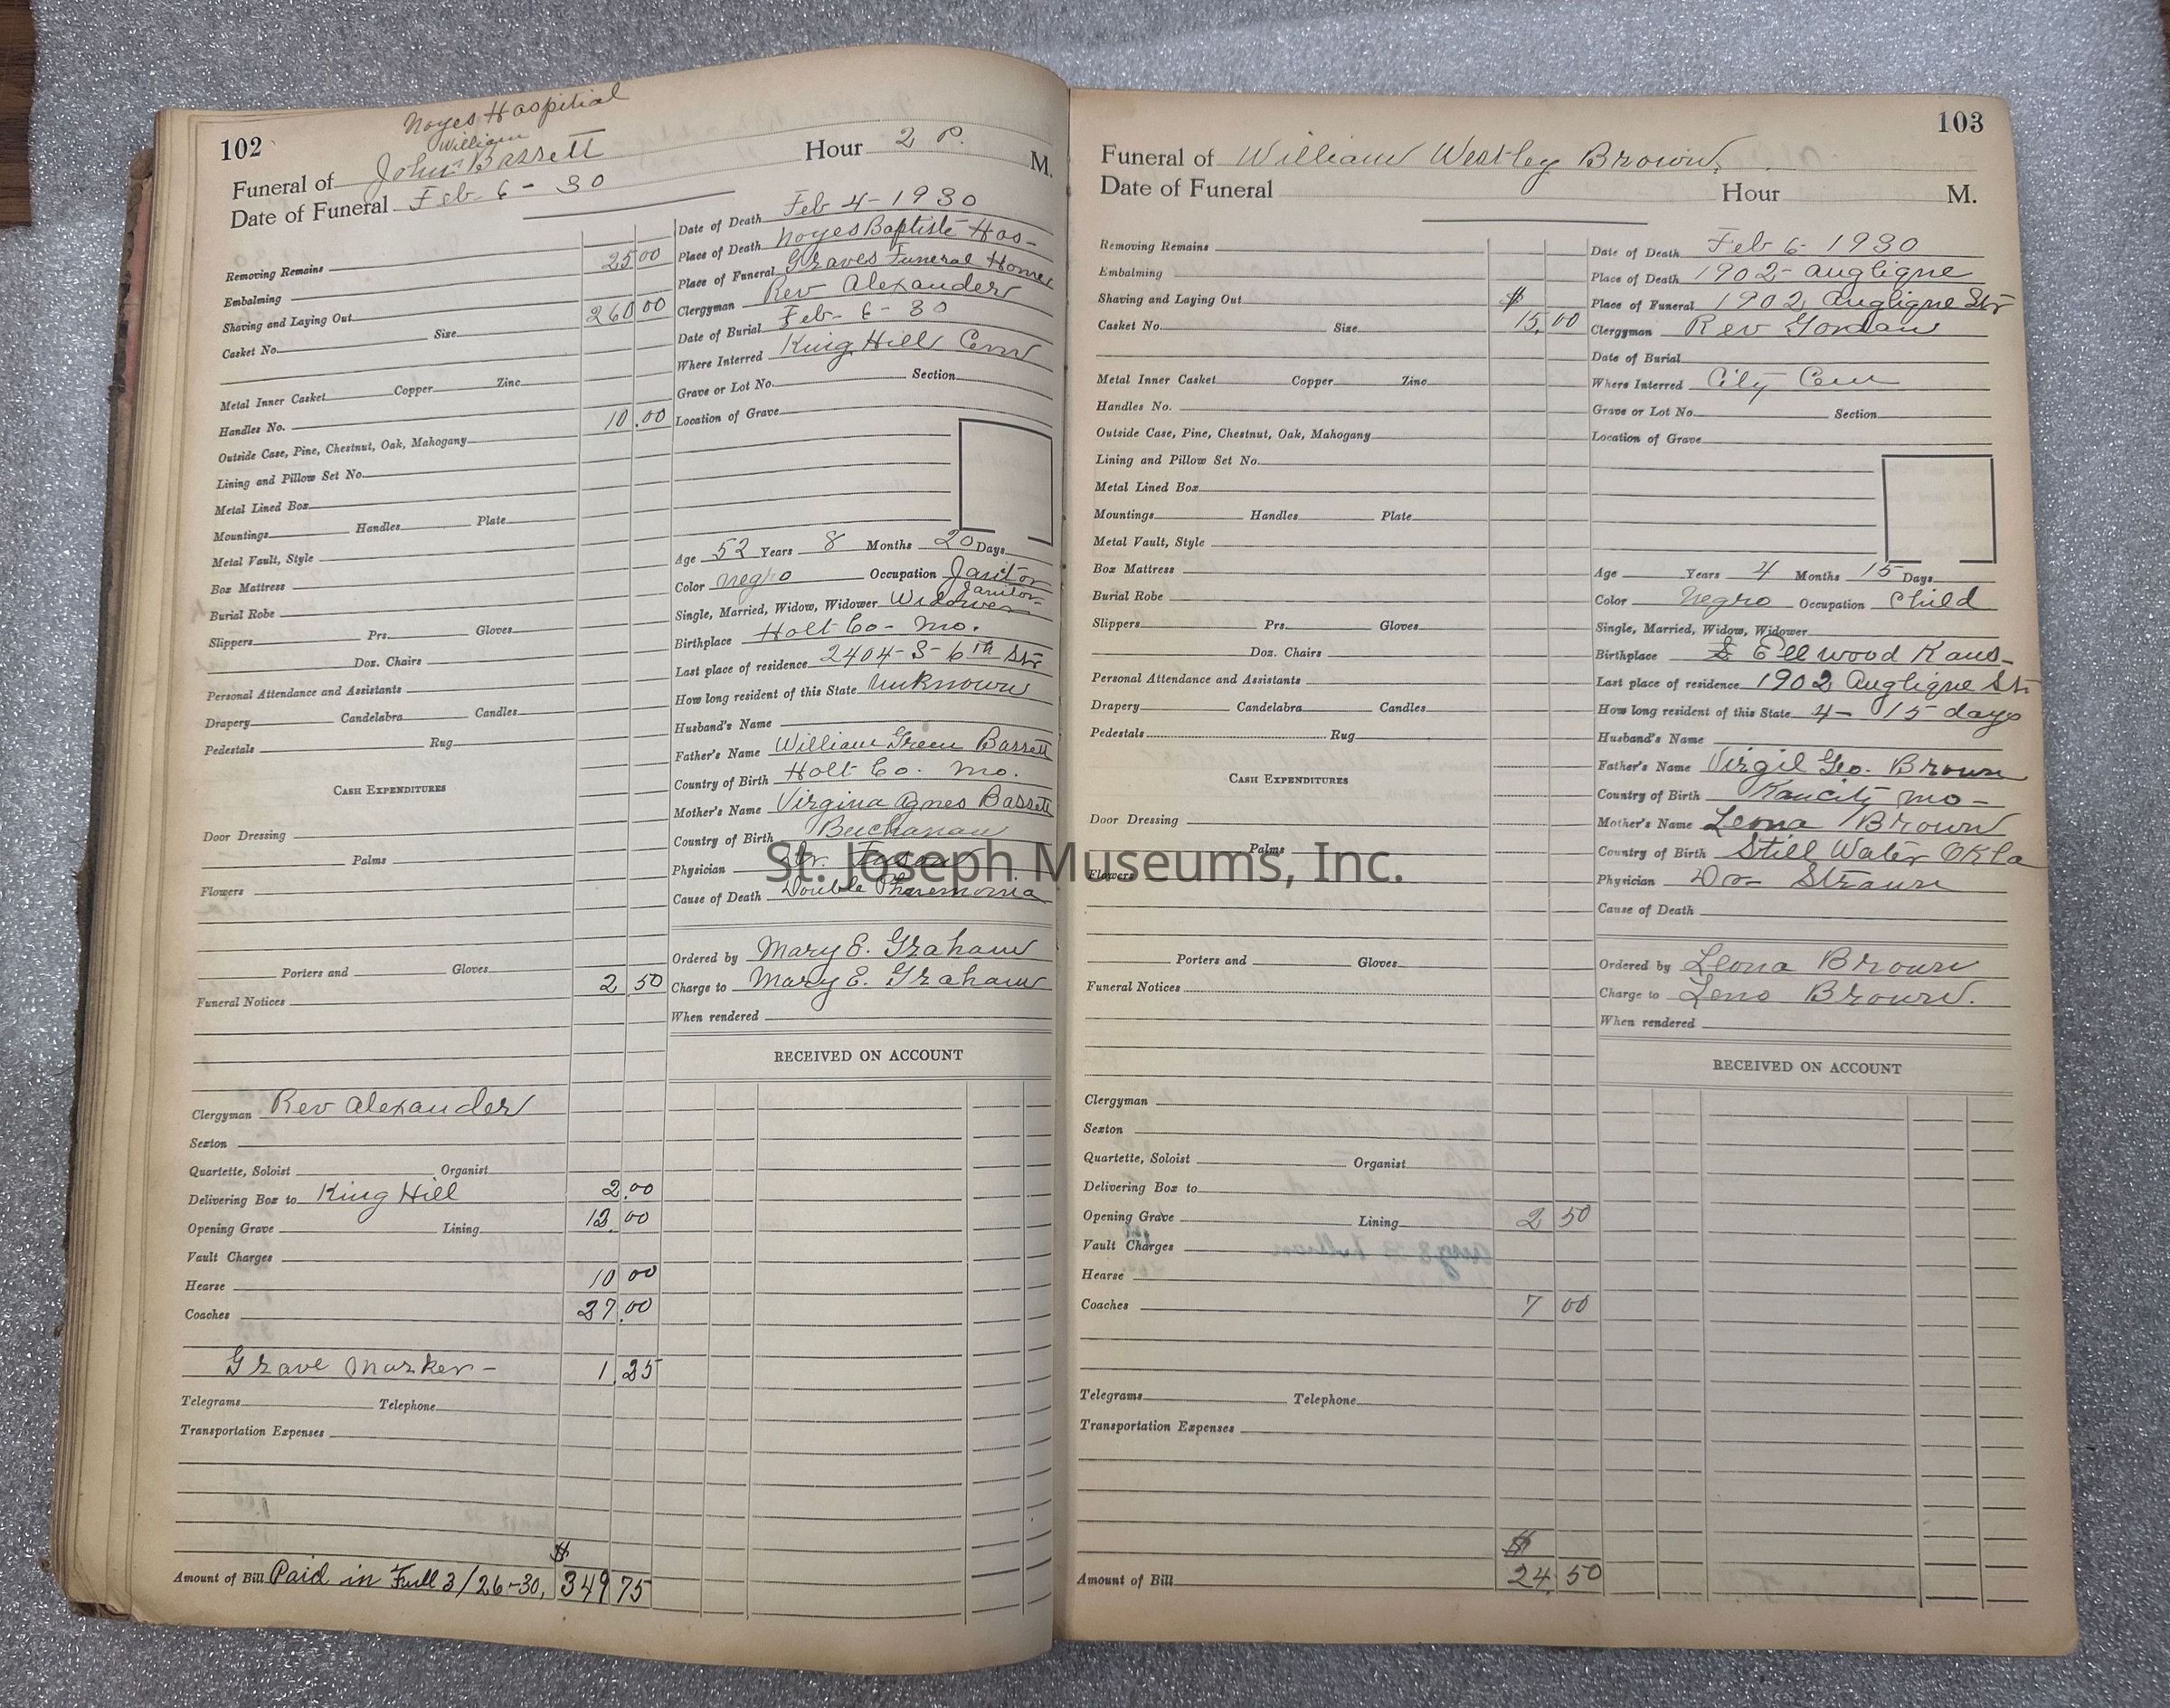 102
Noyes Haspitial
William
Funeral of John Bassett
Hour 2 P. M.
Date of Funeral Feb 6 - 30
Removing Remains
Embalming 25 00
Shaving and Laying Out
Casket No. Size 260 00
Metal Inner Casket Copper Zinc
Handles No.
Outside Case, Pine, Chestnut, Oak, Mahogany 10.00
Lining and Pillow Set No.
Metal Lined Box
Mountings Handles Plate
Metal Vault, Style
Box Mattress
Burial Robe
Slippers Prs. Gloves
Doz. Chairs
Personal Attendance and Assistants
Drapery Candelabra Candles
Pedestals Rug
CASH EXPENDITURES
Door Dressing
Palms
Flowers
Porters and Gloves
Funeral Notices 2 50
Clergyman Rev Alexander
Sexton
Quartette, Soloist Organist
Delivering Box to King Hill 2.00
Opening Grave Lining 12.00
Vault Charges
Hearse 10 00
Coaches 27.00
Grave Marker - 1.25
Telegrams Telephone
Transportation Expenses
$
Amount of Bill Paid in Full 3/26-30, 349 75
Date of Death Feb 4 - 1930
Place of Death Noyes Baptiste Hos-
Place of Funeral Graves Funeral Home
Clergyman Rev Alexander
Date of Burial Feb - 6 - 30
Where Interred King Hill Cem
Grave or Lot No. Section
Location of Grave
Age 52 Years 8 Months 20 Days
Color negro Occupation Janitor
Janitor
Single, Married, Widow, Widower Widower
Birthplace Holt Co - Mo.
Last place of residence 2404 - S - 6th Str
How long resident of this State Unknown
Husband's Name
Father's Name William Green Bassett
Country of Birth Holt Co. Mo.
Mother's Name Virgina Agnes Bassett
Country of Birth Buchanan
Physician Dr.
Cause of Death Double Pneumonia
Ordered by Mary E. Graham
Charge to Mary E. Graham
When rendered
RECEIVED ON ACCOUNT
St. Joseph Museums, Inc.
103
Funeral of William Westley Brown.
Date of Funeral Hour M.
Removing Remains
Embalming
Shaving and Laying Out $
Casket No. Size 15.00
Metal Inner Casket Copper Zinc
Handles No.
Outside Case, Pine, Chestnut, Oak, Mahogany
Lining and Pillow Set No.
Metal Lined Box
Mountings Handles Plate
Metal Vault, Style
Box Mattress
Burial Robe
Slippers Prs. Gloves
Doz. Chairs
Personal Attendance and Assistants
Drapery Candelabra Candles
Pedestals Rug
CASH EXPENDITURES
Door Dressing
Palms
Flowers
Porters and Gloves
Funeral Notices
Clergyman
Sexton
Quartette, Soloist Organist
Delivering Box to
Opening Grave Lining 2 50
Vault Charges
Hearse
Coaches 7 00
Telegrams Telephone
Transportation Expenses
$
Amount of Bill 24.50
Date of Death Feb 6 - 1930
Place of Death 1902 - Anglique
Place of Funeral 1902 Anglique Str
Clergyman Rev Gordan
Date of Burial
Where Interred City Cem
Grave or Lot No. Section
Location of Grave
Age Years 4 Months 15 Days
Color Negro Occupation Child
Single, Married, Widow, Widower
Birthplace Ellwood Kans-
Last place of residence 1902 Anglique St.
How long resident of this State 4 - 15 days
Husband's Name
Father's Name Virgil Geo. Brown
Country of Birth Kancity Mo -
Mother's Name Leona Brown
Country of Birth Still Water Okla
Physician Dr - Straun
Cause of Death
Ordered by Leona Brown
Charge to Leno Brown.
When rendered
RECEIVED ON ACCOUNT